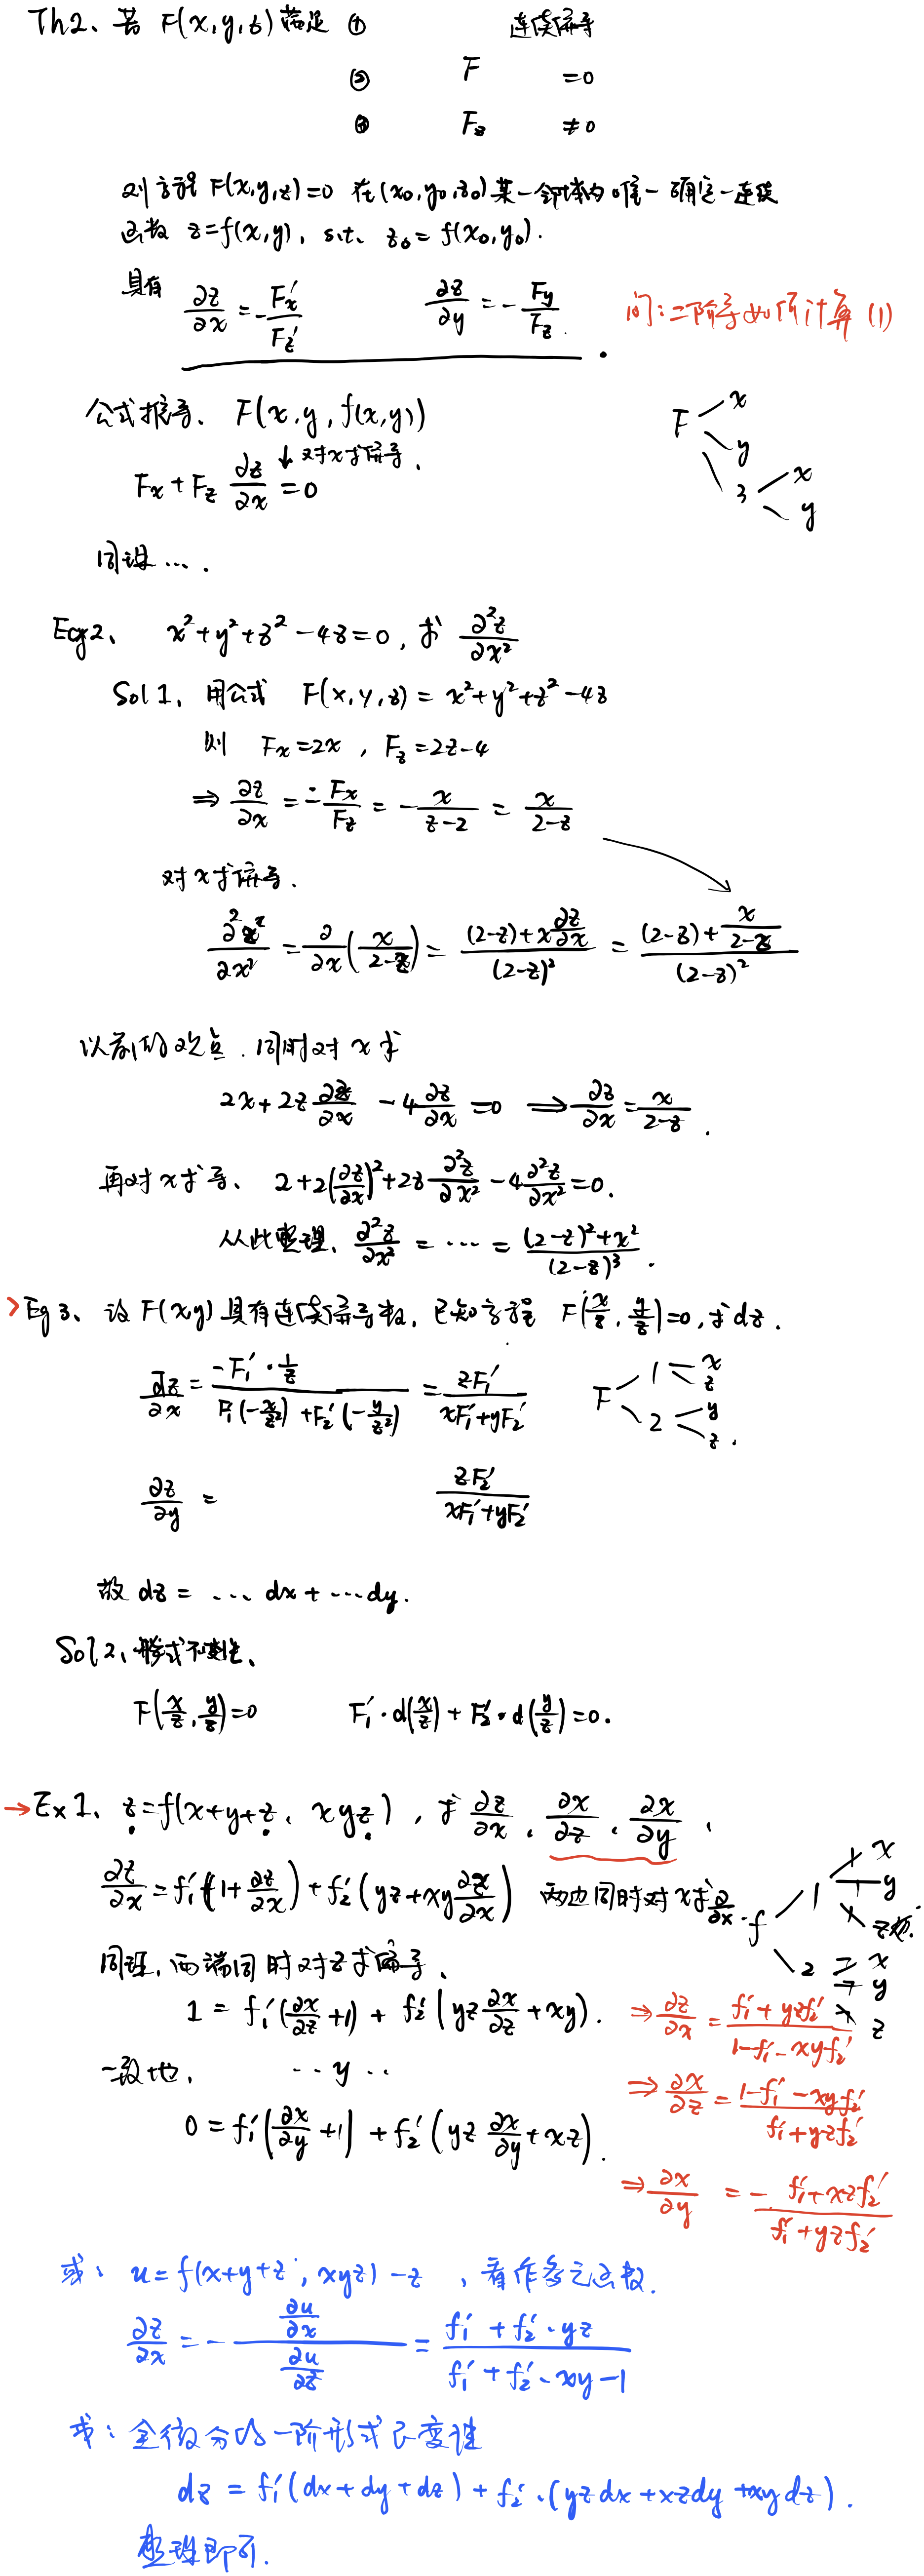 Th2、若 F(x,y,z)满足 ① 连续偏导
② F =0
③ Fz ≠0
则方程 F(x,y,z)=0 在(x₀,y₀,z₀)某一邻域内唯一确定一连续
函数 z=f(x,y), s.t. z₀=f(x₀,y₀).
具有 ∂z/∂x = -Fx'/Fz' ∂z/∂y = -Fy/Fz.
问:二阶导如何计算(1)
公式推导、 F(x,y,f(x,y))
↓对x求偏导.
Fx+Fz ∂z/∂x =0
F x y z x y
同理….
Eg2、 x²+y²+z²-4z=0, 求 ∂²z/∂x²
Sol 1、用公式 F(x,y,z)=x²+y²+z²-4z
则 Fx=2x , Fz=2z-4
⇒ ∂z/∂x = -Fx/Fz = -x/(z-2) = x/(2-z)
对x求偏导.
∂²z/∂x² = ∂/∂x(x/(2-z)) = ((2-z)+x ∂z/∂x)/(2-z)² = ((2-z)+x/(2-z))/(2-z)²
以前的观点.同时对 x 求
2x+2z ∂z/∂x -4 ∂z/∂x =0 ⟹ ∂z/∂x = x/(2-z).
再对x求导、 2+2(∂z/∂x)²+2z ∂²z/∂x² -4 ∂²z/∂x² =0.
从此整理、 ∂²z/∂x² = … = ((2-z)²+x²)/(2-z)³.
>Eg 3、设 F(x,y) 具有连续偏导数, 已知方程 F(x/z, y/z)=0, 求dz.
∂z/∂x = (-F₁'·1/z)/(F₁'(-x/z²)+F₂'(-y/z²)) = zF₁'/(xF₁'+yF₂')
F 1 x z 2 y z.
∂z/∂y = zF₂'/(xF₁'+yF₂')
故 dz = … dx + … dy.
Sol 2、形式不变性、
F(x/z, y/z)=0 F₁'·d(x/z) + F₂'·d(y/z)=0.
→Ex 1、 z=f(x+y+z, xyz) , 求 ∂z/∂x, ∂x/∂z, ∂x/∂y.
∂z/∂x = f₁'(1+∂z/∂x) + f₂'(yz+xy ∂z/∂x) 两边同时对 x求 ∂/∂x.
f 1 x y z 2 x y z
同理,两端同时对z求偏导、
1 = f₁'(∂x/∂z+1) + f₂'(yz ∂x/∂z + xy).
⇒ ∂z/∂x = (f₁'+yzf₂')/(1-f₁'-xyf₂')
一般地, … y …
⇒ ∂x/∂z = (1-f₁'-xyf₂')/(f₁'+yzf₂')
0 = f₁'(∂x/∂y+1) + f₂'(yz ∂x/∂y + xz).
⇒ ∂x/∂y = -(f₁'+xzf₂')/(f₁'+yzf₂')
或、 u=f(x+y+z, xyz)-z , 看作多元函数.
∂z/∂x = -(∂u/∂x)/(∂u/∂z) = (f₁'+f₂'·yz)/(f₁'+f₂'·xy-1)
求:全微分的一阶形式不变性
dz = f₁'(dx+dy+dz) + f₂'·(yzdx+xzdy+xydz).
整理即可.